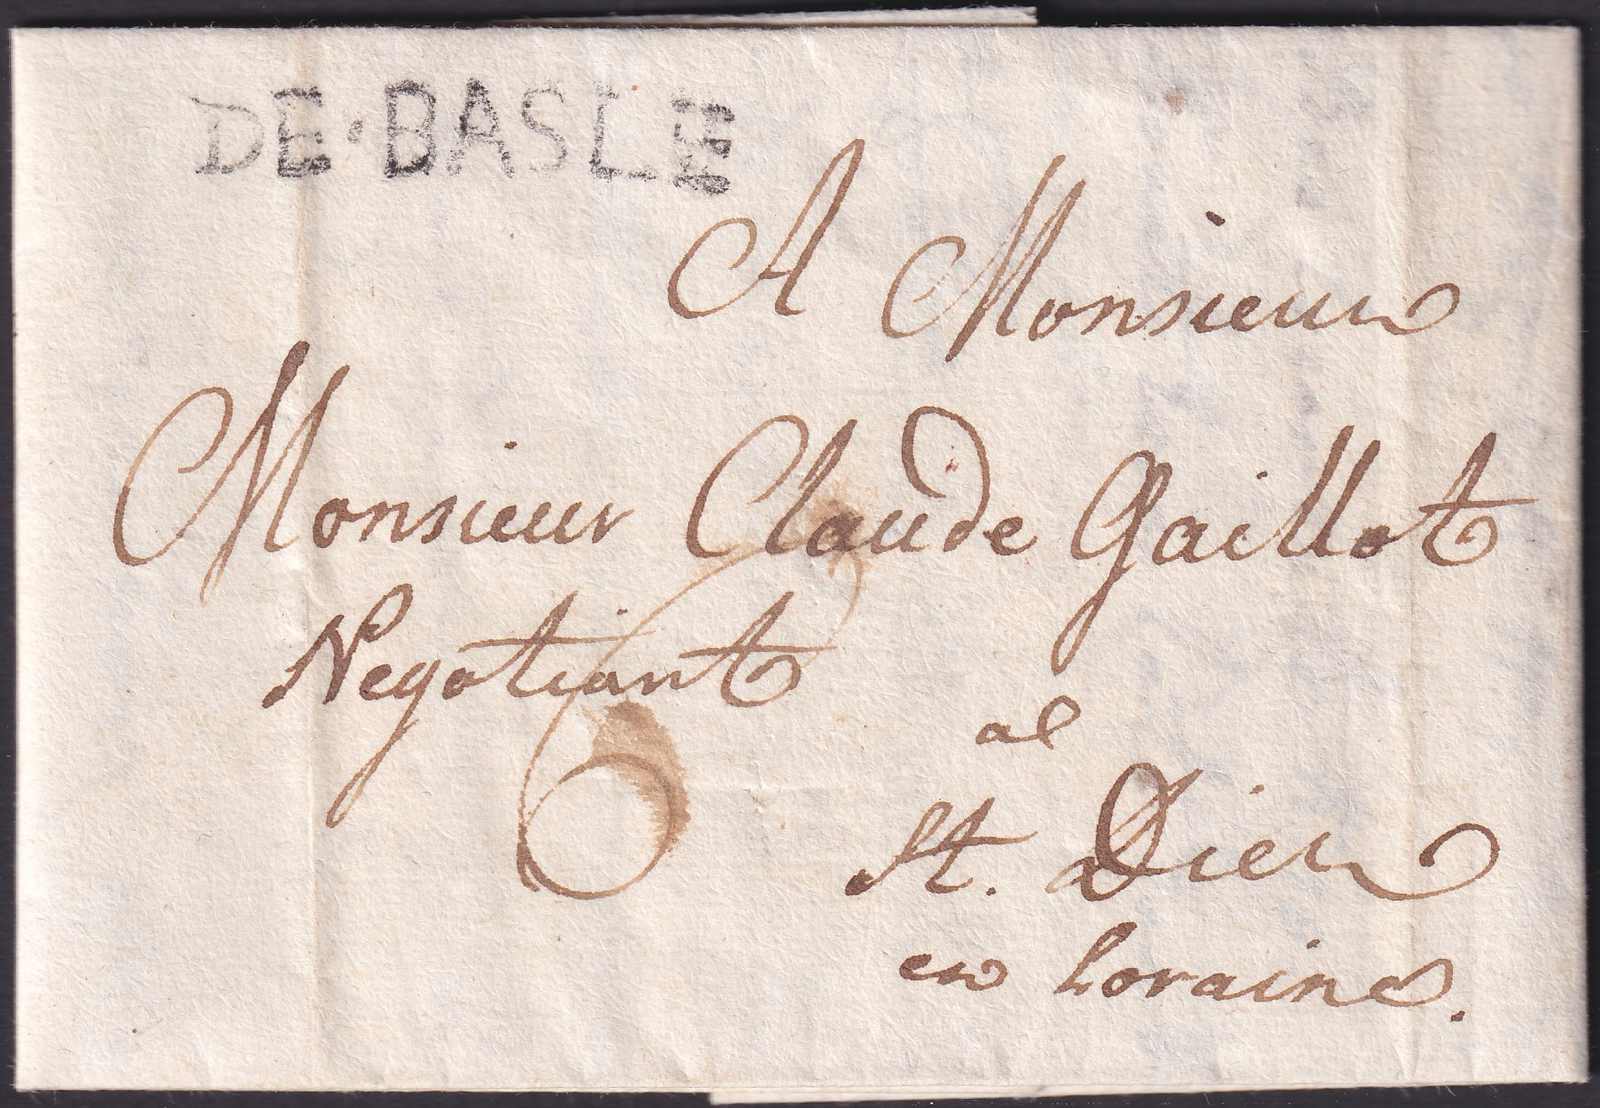 DE·BASLE
A Monsieur
Monsieur Claude Gaillot
Negotiant
6
al
St. Diei
en Loraine.